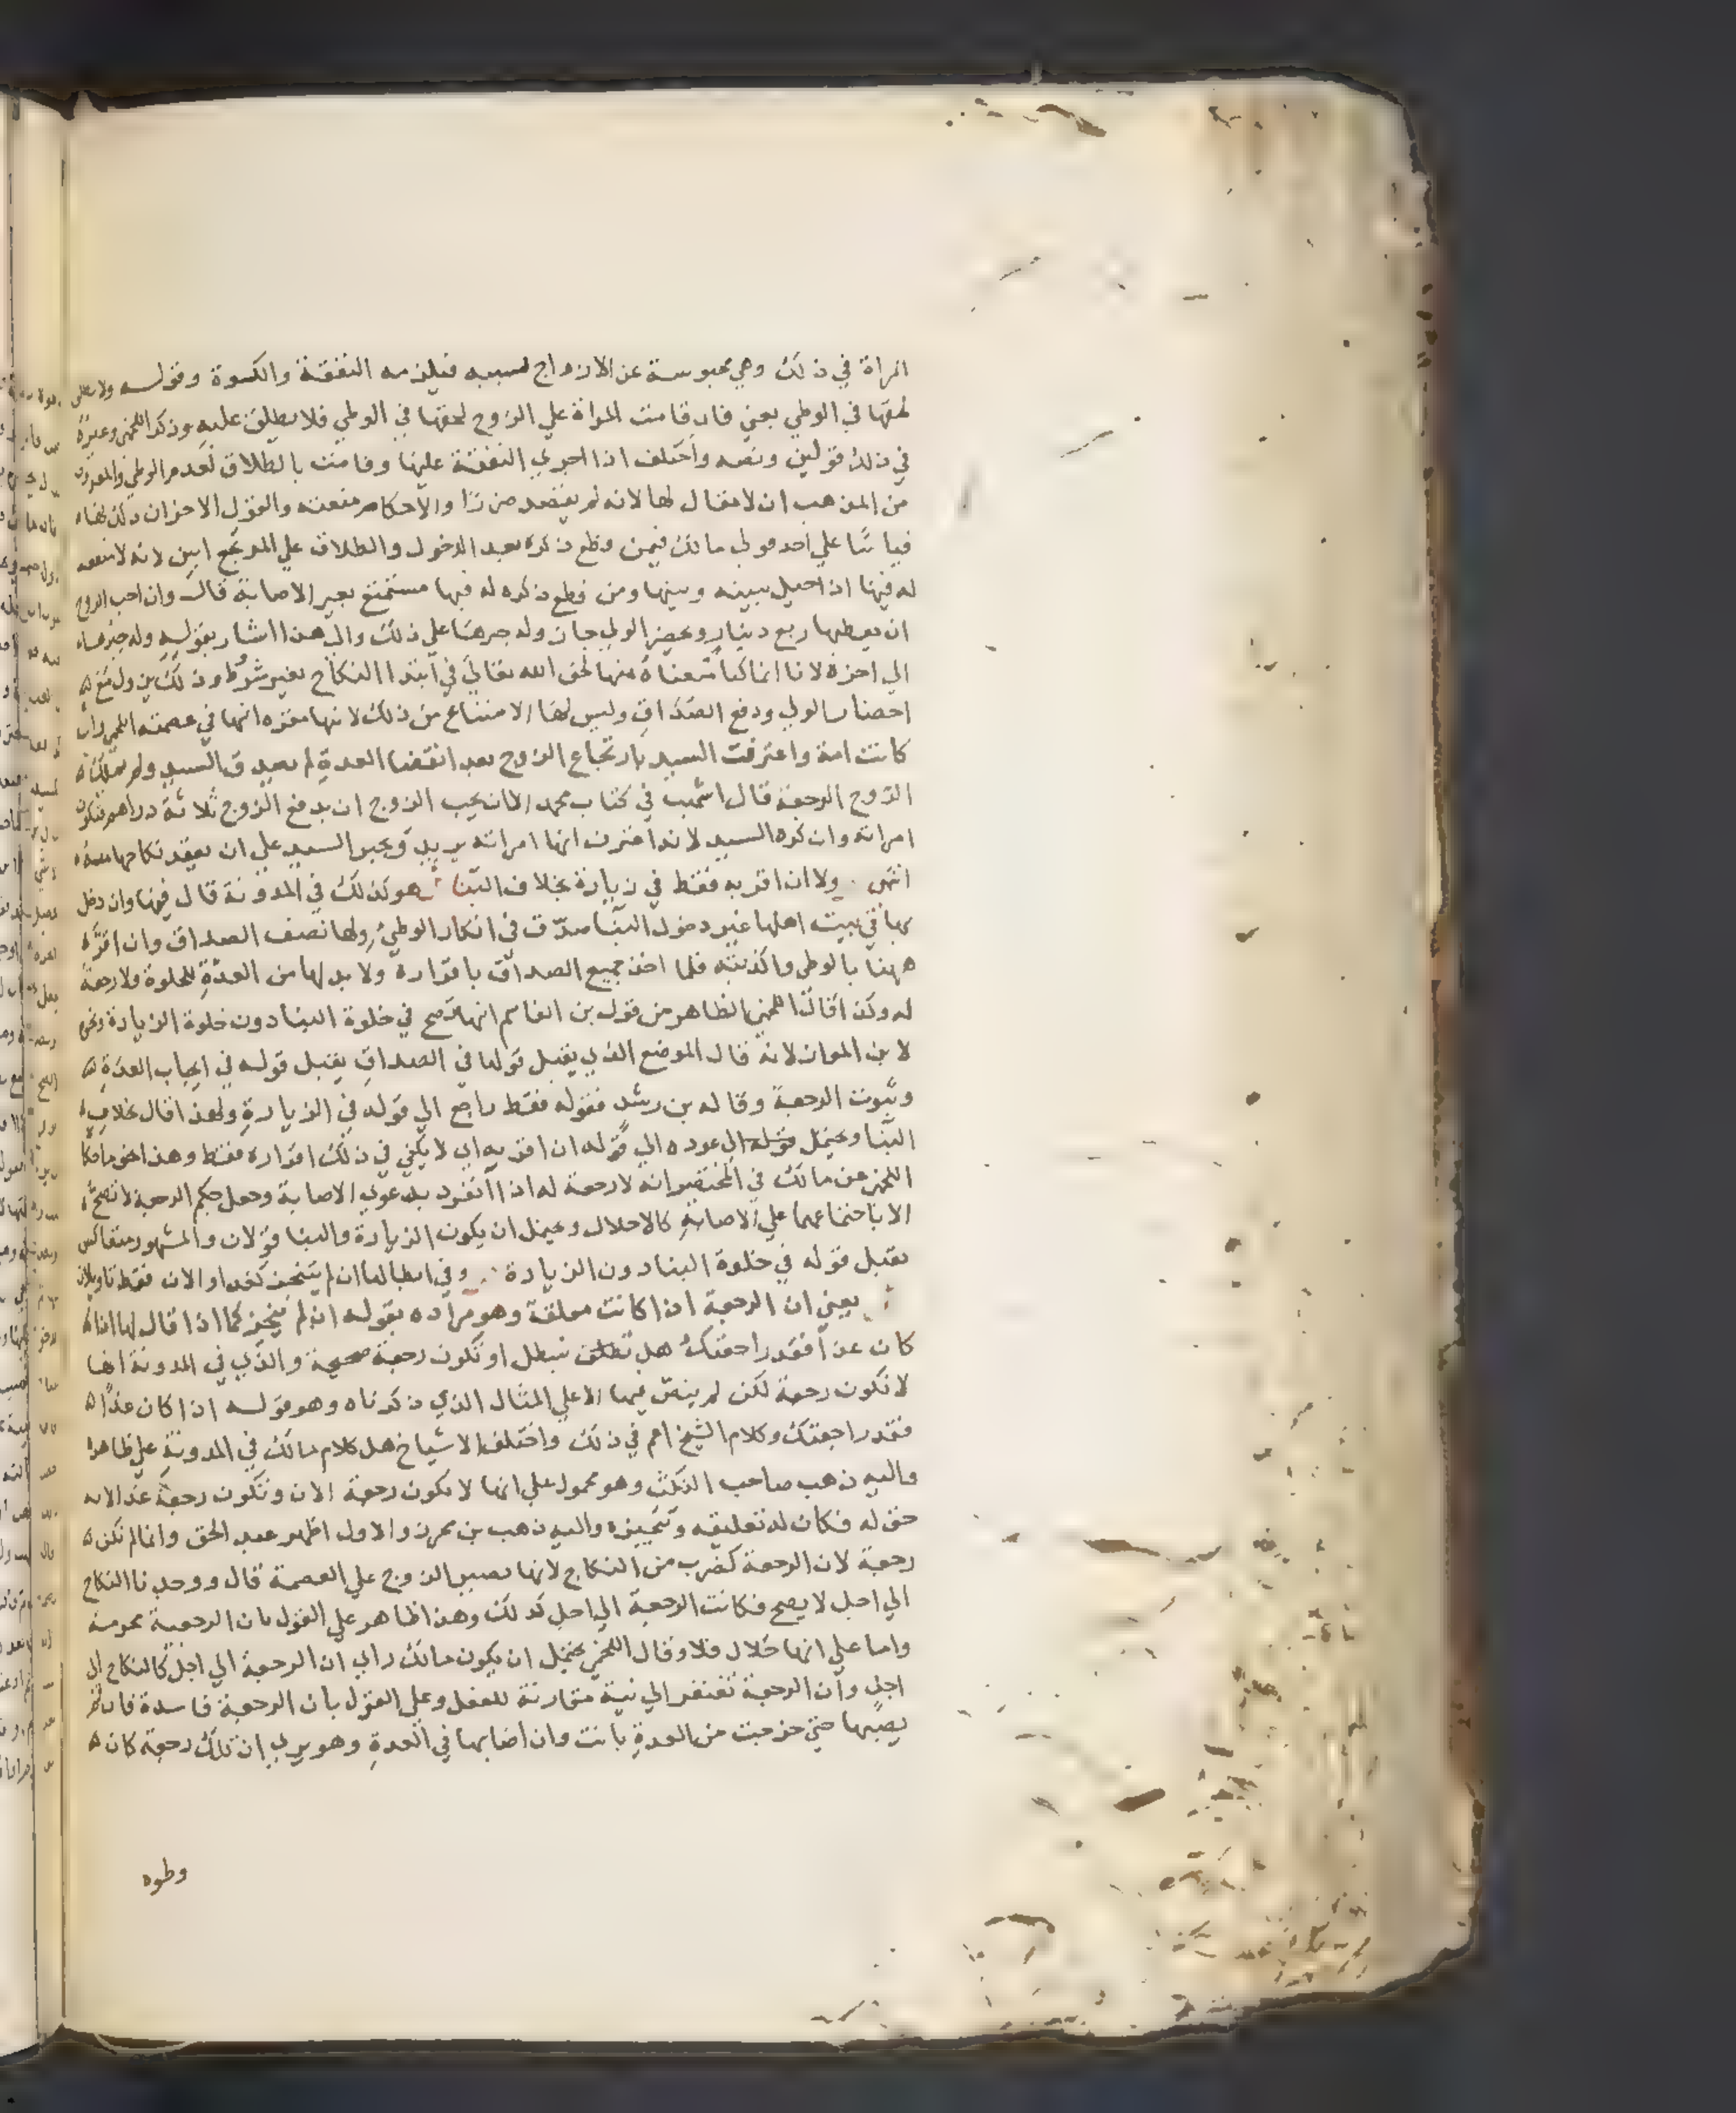 المراة في ذلك وهي محبوسة عن الازواج لسببه فيلزمه النفقة والكسوة وقوله ولا يطلق
لحقها في الوطي يعني فان قامت المراة علي الزوج لحقها في الوطي فلا يطلق عليه وذكر اللخمي وغيره
في ذلك قولين ونصه واختلف اذا اجري النفقة عليها وقامت بالطلاق لعدم الوطي والمعروف
من المذهب ان لا مقال لها لانه لم يقصد ضررا والاحكام منعته والقول الاخر ان ذلك لها
قياسا علي احد قولي مالك فيمن قطع ذكره بعد الدخول والطلاق علي المرتجع ابين لانه لا منفعة
له فيها اذا حيل بينه وبينها ومن قطع ذكره له فيها مستمتع بغير الاصابة قال وان احب الزوج
ان يعطيها ربع دينار ويحضر الولي جاز وله جبرها علي ذلك والي هذا اشار بقوله وله جبرها
الي اخره لانا انما كنا منعناه منها لحق الله تعالي في ابتدا النكاح بغير شروط وذلك يزول مع
احضار الولي ودفع الصداق وليس لها الامتناع من ذلك لانها مقره انها في عصمته اللخمي وان
كانت امة واعترفت السيد بارتجاع الزوج بعد انقضا العدة لم يصدق السيد ولم يملك
الزوج الرجعة قال اشهب في كتاب محمد الا ان يحب الزوج ان يدفع الزوج ثلاثة دراهم فتكون
امراته وان كره السيد لانه اعترف انها امراته يريد ويجبر السيد علي ان يعقد نكاحها منه
انتهي ولا ان اقر به فقط في زيارة بخلاف البنا هو كذلك في المدونة قال فيها وان دخل
بها في بيت اهلها غير دخول البنا صدق في انكار الوطئ ولها نصف الصداق وان اقر
ههنا بالوطي واكذبته فلها اخذ جميع الصداق باقراره ولا بد لها من العدة للخلوة ولا رجعة
له وكذا قال اللخمي الظاهر من قول بن القاسم انها تصح في خلوة البنا دون خلوة الزيارة ونحوه
لابن المواز لانه قال الموضع الذي يقبل قولها في الصداق يقبل قوله في ايجاب العدة
وثبوت الرجعة وقاله بن رشد فقوله فقط راجع الي قوله في الزيارة ولهذا قال بخلاف
البنا ويحتمل عوده الي قوله ان اقر به اي لا يكفي في ذلك اقراره فقط وهذا نحو ما حكا
اللخمي عن مالك في المختصر انه لا رجعة له اذا انفرد بدعوي الاصابة وجعل حكم الرجعة لا تصح
الا باجتماعهما علي الاصابة كالاحلال ويحتمل ان يكون الزيارة والبنا قولان والمشهور منهما كمن
يقبل قوله في خلوة البنا دون الزيارة وفي ابطالها ان لم تنجز كغد او الان فقط تاويلان
يعني ان الرجعة اذا كانت معلقة وهو مراده بقوله ان لم تنجز كما اذا قال لها اذا
كان غدا فقد راجعتك هل تبطل او تكون رجعة صحيحة والذي في المدونة انها
لا تكون رجعة لكن لم ينص فيها الا علي المثال الذي ذكرناه وهو قوله اذا كان غدا
فقد راجعتك وكلام الشيخ اعم في ذلك واختلف الاشياخ هل كلام مالك في المدونة علي ظاهره
واليه ذهب صاحب النكت وهو محمول علي انها لا تكون رجعة الان وتكون رجعة غدا لانه
حق له فكان له تعليقه وتنجيزه واليه ذهب بن محرز والاول اظهر عبد الحق وانما لم تكن
رجعة لان الرجعة كضرب من النكاح لانها تصير الزوج علي العصمة قال ووجدنا النكاح
الي اجل لا يصح فكانت الرجعة الي اجل كذلك وهذا ظاهر علي القول بان الرجعية محرمة
واما علي انها حلال فلا وقال اللخمي يحتمل ان يكون مالك راي ان الرجعة الي اجل كالنكاح الي
اجل وان الرجعة تفتقر الي نية مقارنة للفعل وعلي القول بان الرجعة فاسدة فان لم
يصبها حتي خرجت من العدة بانت وان اصابها في العدة وهو يري ان تلك رجعة كان
وطوه